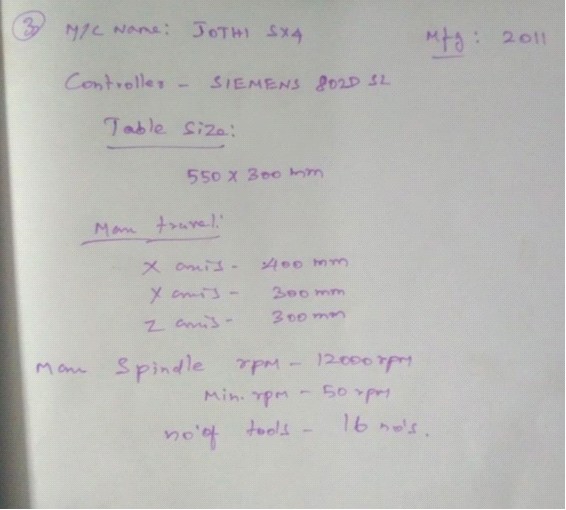 3 M/C Name: JOTHI SX4 Mfg: 2011
Controller - SIEMENS 802D SL
Table Size:
550 x 300 mm
Max travel:
X axis - 400 mm
Y axis - 300 mm
Z axis - 300 mm
Max Spindle rpm - 12000 rpm
Min. rpm - 50 rpm
no'of tools - 16 no's.